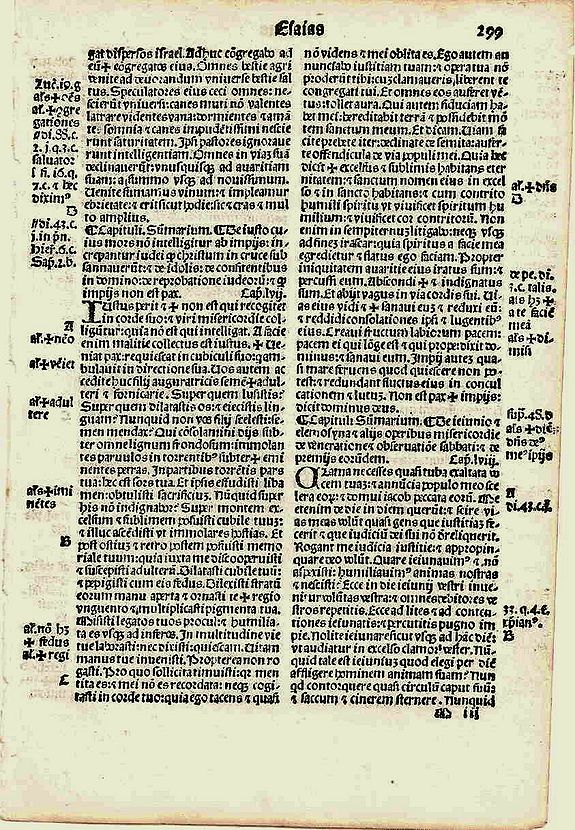 Esaias 299
gat dispersos israel. Adhuc cōgregabo ad
eū ✠ cōgregatos eius. Omnes bestie agri
venite ad deuorandum vniuerse bestie sal
tus. Speculatores eius ceci omnes: ne-
scierūt vniuersi: canes muti nō valentes
latrare videntes vana: dormientes ⁊ amā
tes somnia ⁊ canes impudēissimi nescie
runt saturitatem. Ipsi pastores ignoraue
runt intelligentiam. Omnes in viaz suā
declinauerūt: vnusquisq̨ ad auaritiam
suam: a summo vsq̨ ad nouissimum.
Uenite sumamus vinum: ⁊ impleamur
ebrietate: ⁊ erit sicut hodie: sic ⁊ cras ⁊ mul
to amplius.
⸿ Capituli Summarium. ⸿ De iusto cu-
ius mors nō intelligitur ab impijs: in-
crepantur iudei qͥ christum in cruce sub
sannauerūt: ⁊ de idolis: de confitentibus
in domino: de reprobatione iudeorū: ⁊ ꝙ
impijs non est pax. Cap. lvij.
Iustus perit ⁊ ✠ non est qui recogitet
in corde suo: ⁊ viri misericordie col-
ligūtur: quia nō est qui intelligat. A facie
enim malitie collectus est iustus. ✠ Ue-
niat pax: requiescat in cubili suo: qui am-
bulauit in directione sua. Uos autem ac
cedite huc filij auguratricis semē ✠ adul-
teri ⁊ fornicarie. Super quem lusistis:
Super quem dilatastis os: ⁊ eiecistis lin-
guam? Nunquid non vos filij scelesti: se-
men mendax? Qui cōsolamini in dijs sub-
ter omne lignum frondosum: immolan
tes paruulos in torrentibus subter ✠ emi
nentes petras. In partibus torrētis pars
tua: hec est sors tua. Et ipsis effudisti liba
men: obtulisti sacrificiuz. Nūquid super
his nō indignabor? Super montem ex-
celsum ⁊ sublimem posuisti cubile tuuz:
⁊ illuc ascēdisti vt immolares hostias. Et
post ostiuz ⁊ retro postem posuisti memo
riale tuum: quia iuxta me discooperuisti
⁊ suscepisti adulterū. Dilatasti cubile tuū:
⁊ pepigisti cum eis fedus. Dilexisti stratū
eorum manu aperta ⁊ ornasti te ✠ regio
vnguento ⁊ multiplicasti pigmenta tua.
Misisti legatos tuos procul: ⁊ humilia-
ta es vsq̨ ad inferos. In multitudine vie
tue laborasti: nec dixisti: quiescam. Uitam
manus tue inuenisti. Propterea non ro
gasti. Pro quo sollicita timuisti: qꝛ men
tita es: ⁊ mei nō es recordata: neq̨ cogi-
tasti in corde tuo: quia ego tacens ⁊ quasi
nō videns ⁊ mei oblita es. Ego autem an
nunciabo iustitiam tuam: ⁊ opera tua nō
proderūt tibi: cuz clamaueris, liberent te
congregati tui. Et omnes eos auferet vē-
tus: tollet aura. Qui autem fiduciam ha-
bet mei: hereditabit terrā ⁊ possidebit mō
tem sanctum meum. Et dicam. Uiam fa
cite prebete iter: declinate de semita: aufer-
te offendicula de via populi mei. Quia hec
dicit ✠ excelsus ⁊ sublimis habitans eter
nitatem: ⁊ sanctum nomen eius in excel
so ⁊ in sancto habitans: ⁊ cum contrito
humili spiritu vt viuificet spiritum hu
milium: ⁊ viuificet cor contritorū. Non
enim in sempiternuz litigabo: neq̨ vsq̨
ad finez irascar: quia spiritus a facie mea
egredietur ⁊ flatus ego faciam. Propter
iniquitatem auaritie eius iratus sum: ⁊
percussi eum. Abscondi ✠ ⁊ indignatus
sum. Et abijt vagus in via cordis sui. Ui-
as eius vidi: ⁊ ✠ sanaui euz ⁊ reduxi eū:
⁊ reddidi consolationes ipsi ⁊ lugentibꝰ
eius. Creaui fructum labiorum pacem:
pacem ei qui lōge est ⁊ qui prope: dixit do-
minus: ⁊ sanaui eum. Impij autez qua-
si mare feruens quod quiescere non po-
test: ⁊ redundant fluctus eius in concul
cationem ⁊ lutuz. Non est pax ✠ impijs:
dicit dominus deus.
⸿ Capituli Summarium. ⸿ De ieiunio ⁊
elemosyna ⁊ alijs operibus misericordie
de veneratione ⁊ obseruatiōe sabbati: ⁊ de
premijs eorūdem. Cap. lviij.
Clama ne cesses quasi tuba exalta vo
cem tuaz: ⁊ annūcia populo meo sce
lera eoꝝ: ⁊ domui iacob peccata eorū. Me
etenim de die in diem querūt: ⁊ scire vi-
as meas volūt quasi gens que iustitiaz fe-
cerit ⁊ que iudiciū dei sui nō dereliquerit.
Rogant me iudicia iustitie: ⁊ appropin-
quare deo volūt. Quare ieiunauimꝰ ⁊ nō
aspexisti: humiliauimꝰ animas nostras
⁊ nescisti? Ecce in die ieiunij vestri inue-
nitur volūtas vestra: ⁊ omnes debitores ve
stros repetitis. Ecce ad lites ⁊ ad conten-
tiones ieiunatis: ⁊ percutitis pugno im
pie. Nolite ieiunare sicut vsq̨ ad hāc diē:
vt audiatur in excelso clamor vester. Nū-
quid tale est ieiuniuz quod elegi per diē
affligere hominem animam suam? Nun
qd contorquere quasi circulū caput suū:
⁊ saccum ⁊ cinerem sternere. Nunquid
iij
A
al. ✠ nēo
al. ✠ adul
tere
als ✠ imi
nētes
B
al. nō hꝫ
✠ fedus
al. ✠ regi
C
D
als ✠ di-
misi
A
B